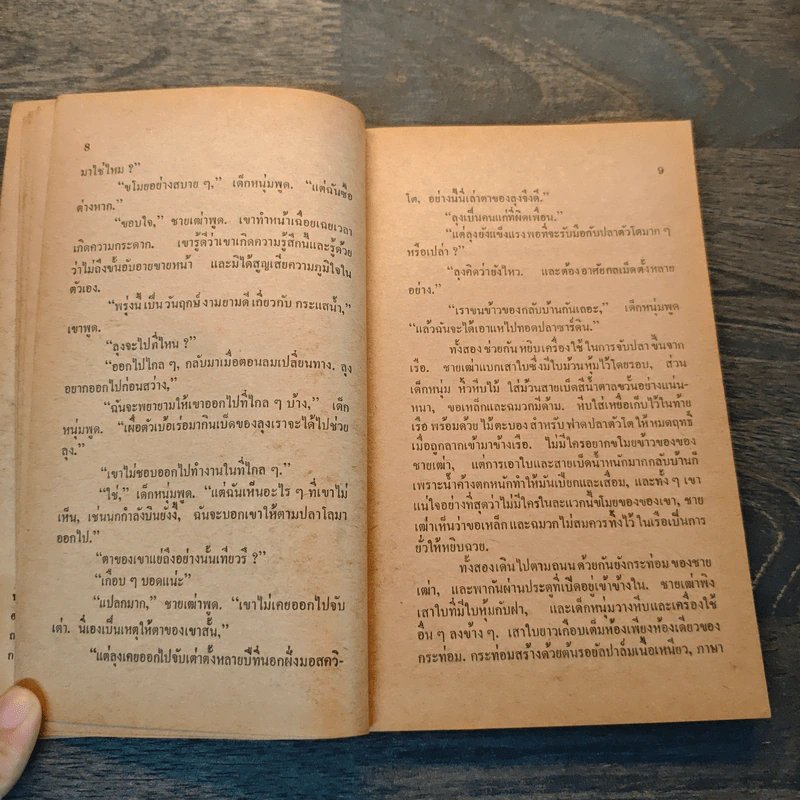 8
มาใช่ไหม ?”
“ขโมยอย่างสบาย ๆ,” เด็กหนุ่มพูด. “แต่ฉันซื้อ
ต่างหาก.”
“ขอบใจ,” ชายเฒ่าพูด. เขาทำหน้าเฉื่อยเฉยเวลา
เกิดความกระดาก. เขารู้ดีว่าเขาเกิดความรู้สึกนี้และรู้ด้วย
ว่าไม่ถึงขั้นอับอายขายหน้า และมิได้สูญเสียความภูมิใจใน
ตัวเอง.
“พรุ่งนี้ เป็น วันฤกษ์ งามยามดี เกี่ยวกับ กระแสน้ำ,”
เขาพูด.
“ลุงจะไปที่ไหน ?”
“ออกไปไกล ๆ, กลับมาเมื่อตอนลมเปลี่ยนทาง. ลุง
อยากออกไปก่อนสว่าง,”
“ฉันจะพยายามให้เขาออกไปที่ไกล ๆ บ้าง,” เด็ก
หนุ่มพูด. “เผื่อตัวเบ้อเร่อมากินเบ็ดของลุงเราจะได้ไปช่วย
ลุง.”
“เขาไม่ชอบออกไปทำงานในที่ไกล ๆ.”
“ใช่,” เด็กหนุ่มพูด. “แต่ฉันเห็นอะไร ๆ ที่เขาไม่
เห็น, เช่นนกกำลังบินยังงี้, ฉันจะบอกเขาให้ตามปลาโลมา
ออกไป.”
“ตาของเขาแย่ถึงอย่างนั้นเทียวรึ ?”
“เกือบ ๆ บอดแน่ะ”
“แปลกมาก,” ชายเฒ่าพูด. “เขาไม่เคยออกไปจับ
เต่า. นี่เองเป็นเหตุให้ตาของเขาสั้น,”
“แต่ลุงเคยออกไปจับเต่าตั้งหลายปีที่นอกฝั่งมอสควิ-
9
โต, อย่างนี้นี่เล่าตาของลุงจึงดี.”
“ลุงเป็นคนแก่ที่ผิดเพื่อน.”
“แต่ลุงยังแข็งแรง พอที่จะรับมือกับปลาตัวโตมาก ๆ
หรือเปล่า ?”
“ลุงคิดว่ายังไหว. และต้องอาศัยกลเม็ดตั้งหลาย
อย่าง.”
“เราขนข้าวของกลับบ้านกันเถอะ,” เด็กหนุ่มพูด
“แล้วฉันจะได้เอาแหไปทอดปลาซาร์ดิน.”
ทั้งสอง ช่วยกัน หยิบเครื่องใช้ ในการจับปลา ขึ้นจาก
เรือ. ชายเฒ่าแบกเสาใบซึ่งมีใบม้วนหุ้มไว้โดยรอบ, ส่วน
เด็กหนุ่ม หิ้วหีบไม้ ใส่ม้วนสายเบ็ดสีน้ำตาลขวั้นอย่างแน่น-
หนา, ขอเหล็กและฉมวกมีด้าม. หีบใส่เหยื่อเก็บไว้ในท้าย
เรือ พร้อมด้วย ไม้ตะบอง สำหรับ ฟาดปลาตัวโต ให้หมดฤทธิ์
เมื่อถูกลากเข้ามาข้างเรือ. ไม่มีใครอยากขโมยข้าวของของ
ชายเฒ่า, แต่การเอาใบและสายเบ็ดน้ำหนักมากกลับบ้านก็
เพราะน้ำค้างตกหนักทำให้มันเปียกและเสื่อม, และทั้ง ๆ เขา
แน่ใจอย่างที่สุดว่าไม่มีใครในละแวกนี้ขโมยของของเขา, ชาย
เฒ่าเห็นว่าขอเหล็กและฉมวกไม่สมควรทิ้งไว้ ในเรือเป็นการ
ยั่วให้หยิบฉวย.
ทั้งสองเดินไปตามถนน ด้วยกันยังกระท่อมของชาย
เฒ่า, และพากันผ่านประตูที่เปิดอยู่เข้าข้างใน. ชายเฒ่าพิง
เสาใบที่มีใบหุ้มกับฝา, และเด็กหนุ่มวางหีบและเครื่องใช้
อื่น ๆ ลงข้าง ๆ. เสาใบยาวเกือบเต็มห้องเพียงห้องเดียวของ
กระท่อม. กระท่อมสร้างด้วยต้นรอยัลปาล์มเนื้อเหนียว, ภาษา